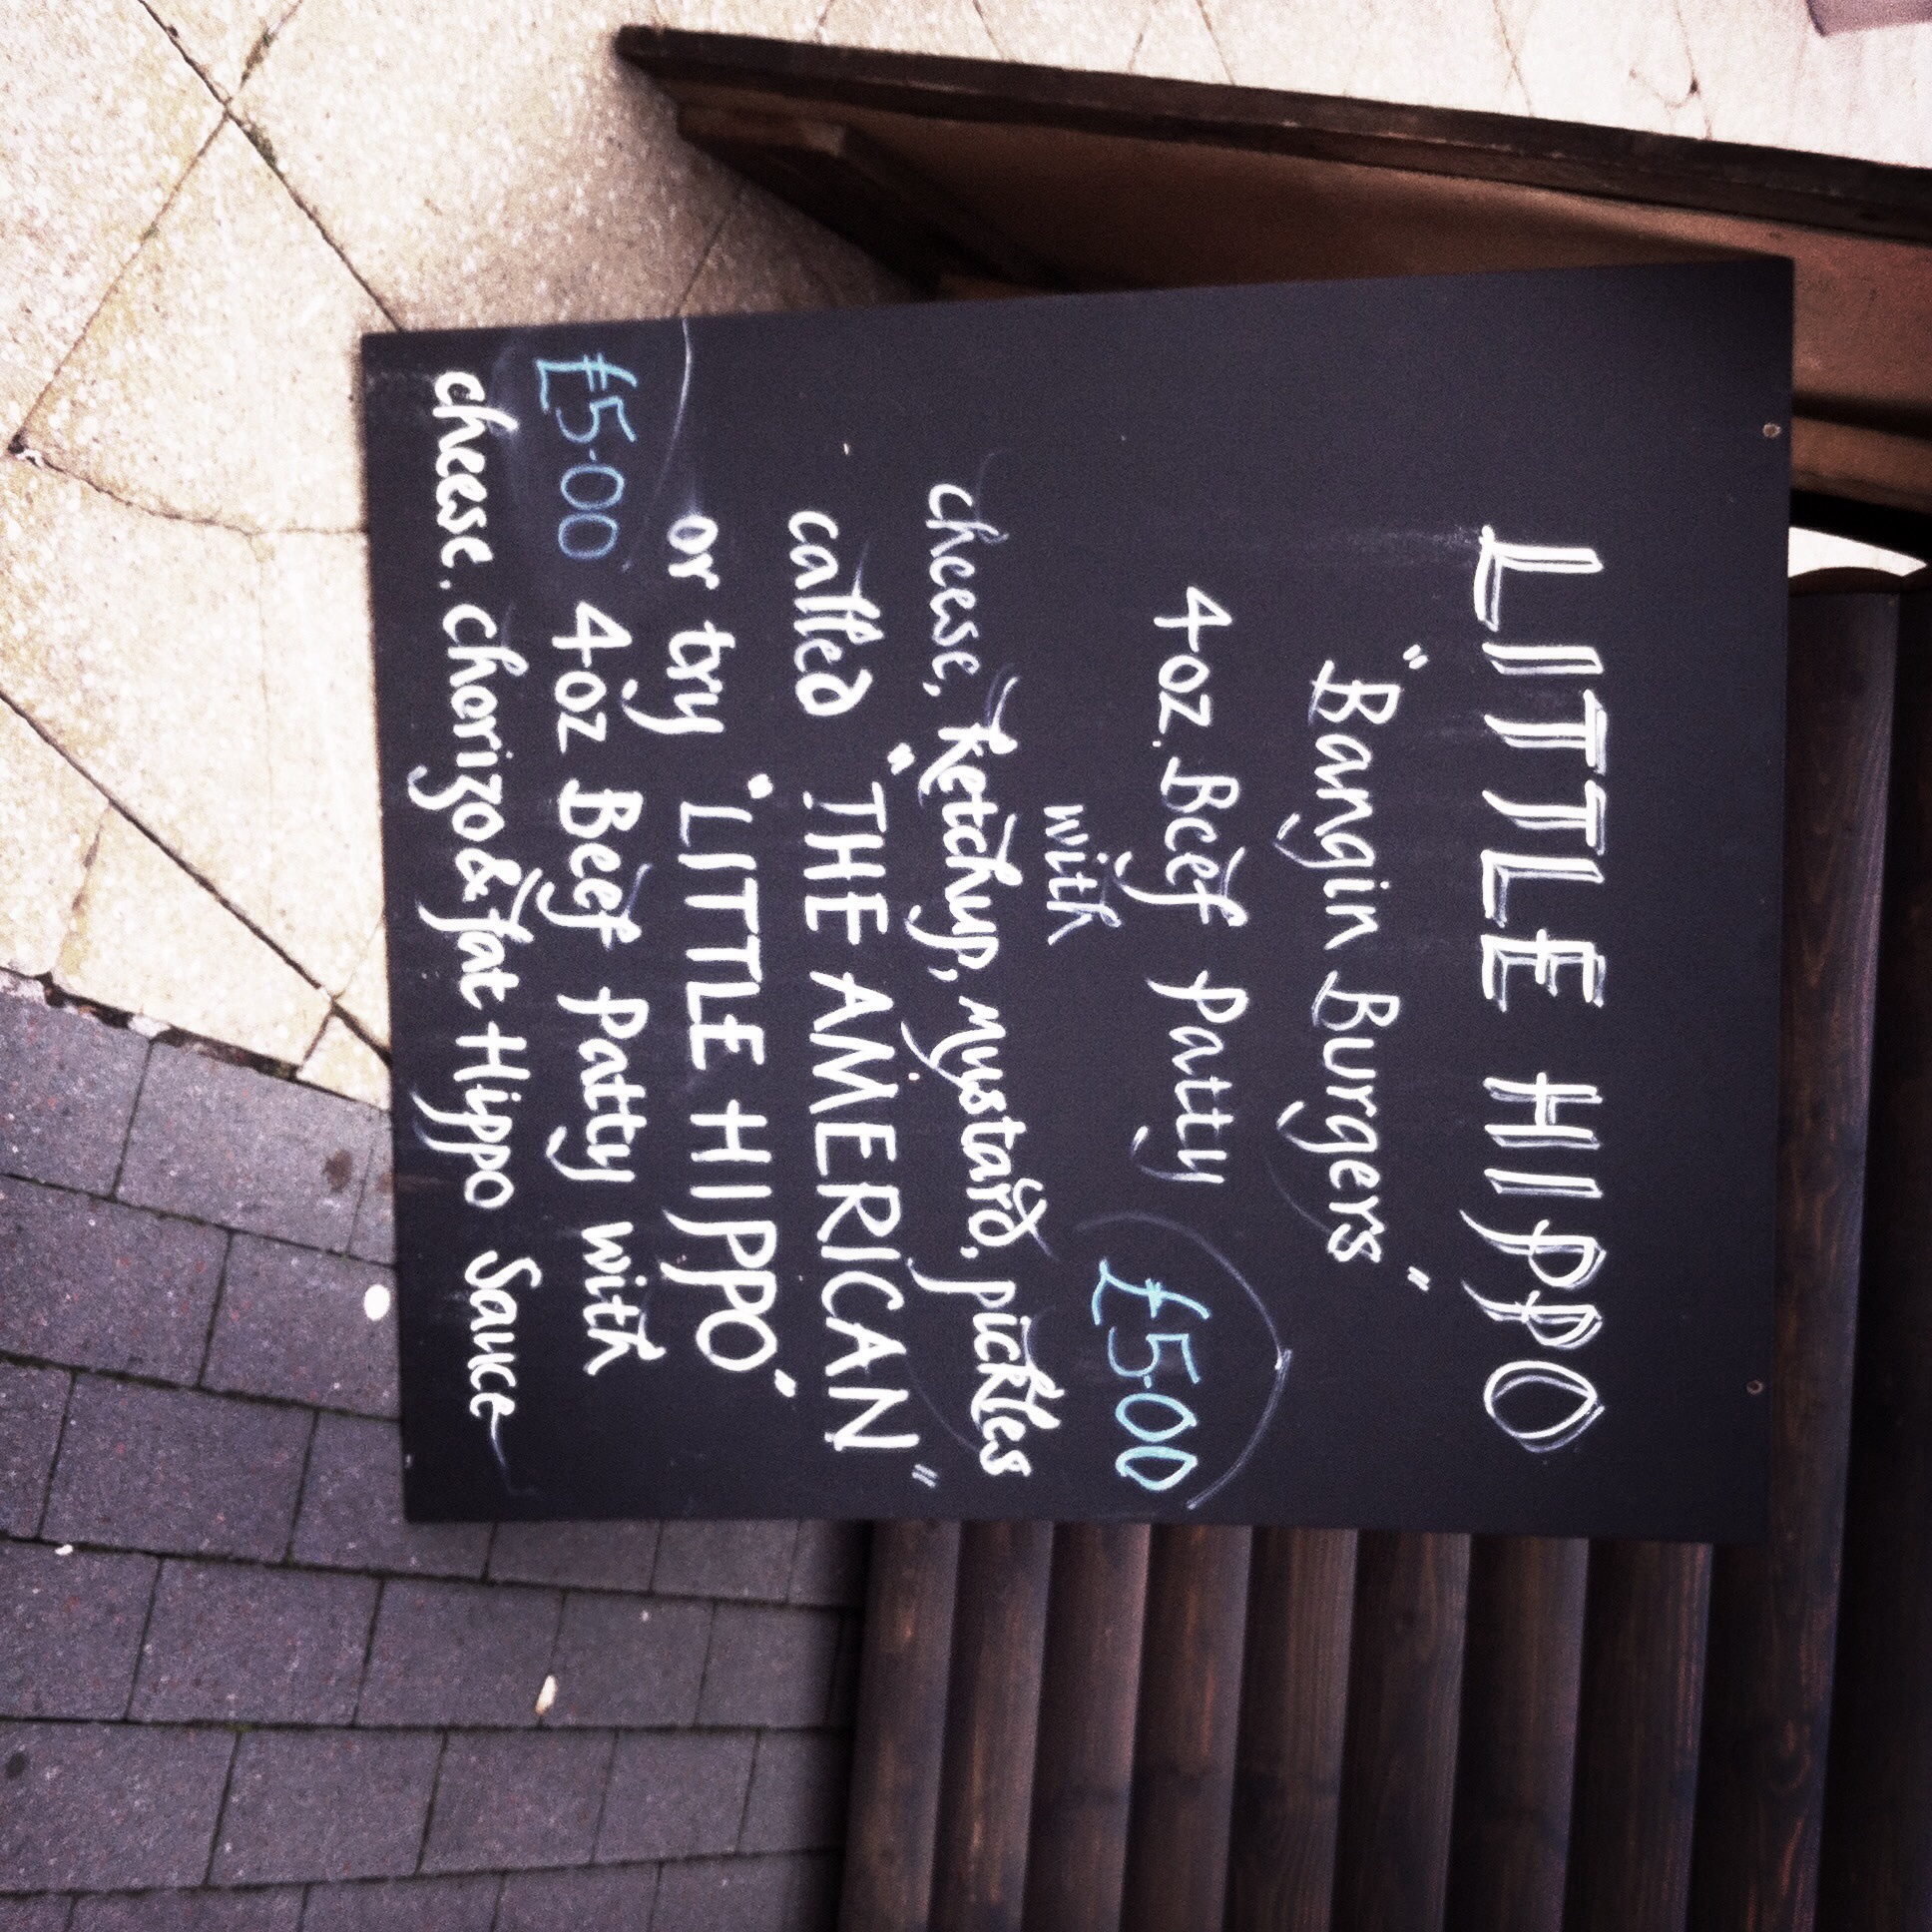 LITTLE HIPPO
"Bangin Burgers"
4oz. Beef Patty
£5.00
with
cheese, Ketchup, mustard, pickles
called "THE AMERICAN"
or try "LITTLE HIPPO"
£5.00 4oz Beef Patty with
cheese, chorizo & fat Hippo Sauce